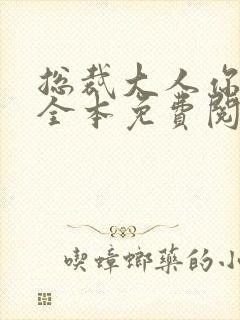 总裁大人你
全本免費閱
喫蟑螂藥的小